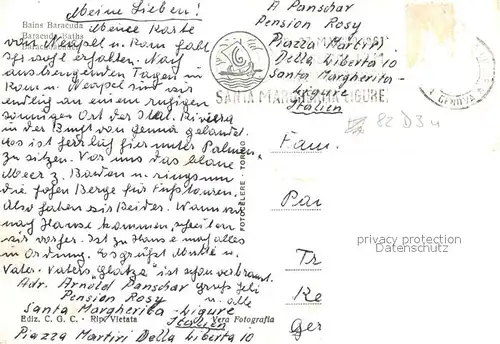 Meine Lieben!
Bains Baracuda
Baracuda Baths
Meine Karte
von Neapel u. Rom habt
Ihr wohl erhalten. Nach
anstrengenden Tagen in
Rom u. Neapel sind wir
endlich an einem ruhigen
sonnigen Ort der Ital. Riviera
in der Bucht von Genua gelandet.
Das ist herrlich hier unter Palmen
zu sitzen. Vor uns das blaue
Meer z. Baden u. ringsum
die hohen Berge für Fußtouren.
Also haben wir beides. Wann wir
nach Hause kommen, schreiben
wir vorher. Ist zu Hause noch alles
in Ordnung. Es grüßt Mutti u.
Vater. Vaters Glatze ist schon verbrannt.
Adr. Arnold Panschar
u. alle
Pension Rosy
Santa Margherita - Ligure
Italien
Ediz. C. G. C. - Rip. Vietata
Vera Fotografia
Piazza Martiri Della Liberta 10
FOTOCELERE - TORINO
A Panschar
Pension Rosy
Piazza Martiri
Della Liberta 10
Santa Margherita-
Ligure
Italien
SANTA MARGHERITA LIGURE
GENOVA
82 D3u
Fam.
Pa
Tr
Ke
Ger
privacy protection
Datenschutz